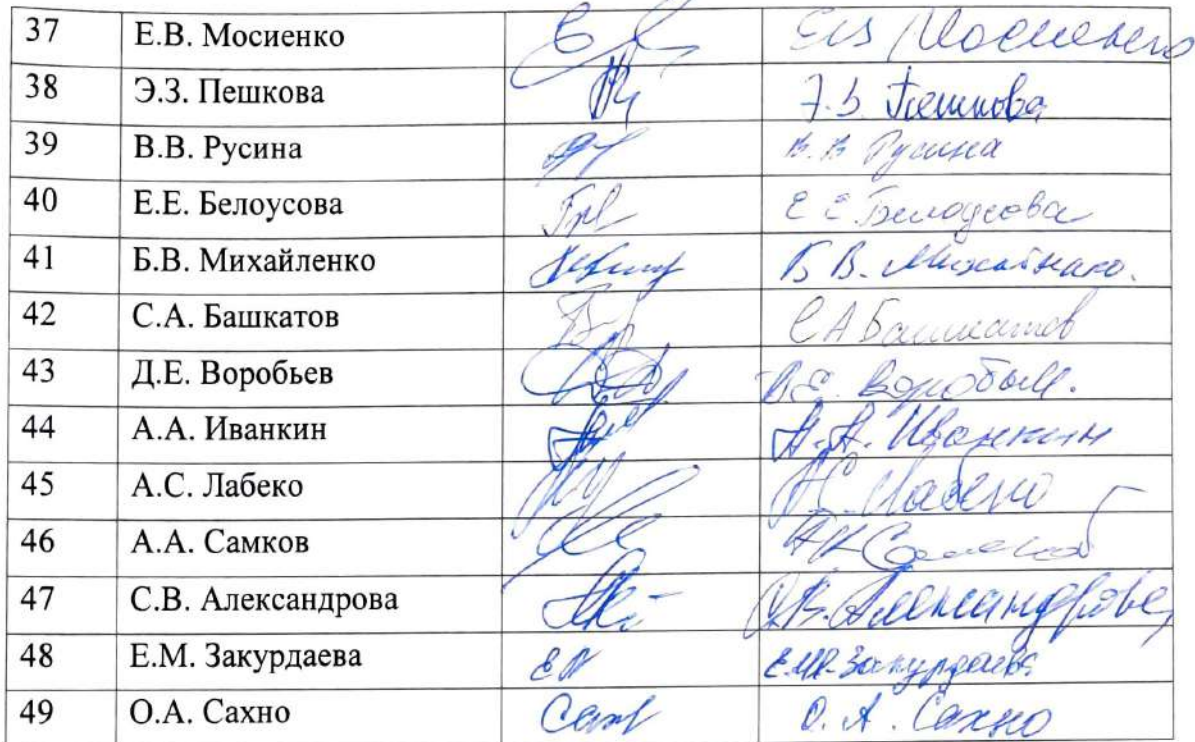 37 Е.В. Мосиенко ЕВ Мосиенко
38 Э.З. Пешкова Э.З. Пешкова
39 В.В. Русина В.В Русина
40 Е.Е. Белоусова Е Е Белоусова
41 Б.В. Михайленко Б В.
42 С.А. Башкатов С А Башкатов
43 Д.Е. Воробьев
44 А.А. Иванкин А.А. Иванкин
45 А.С. Лабеко АС Лабеко
46 А.А. Самков
47 С.В. Александрова С.В. Александрова
48 Е.М. Закурдаева Е.М. Закурдаева
49 О.А. Сахно Сах О. А. Сахно